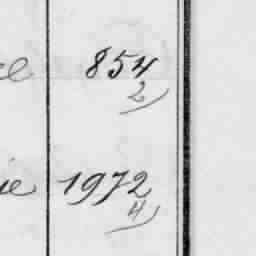 854
2
ie 1972
4